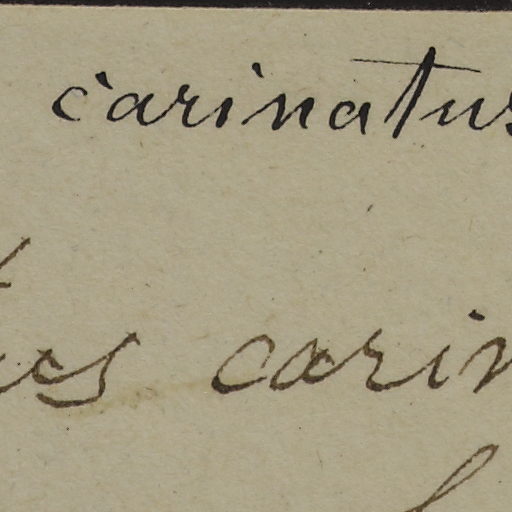 carinatus
carin